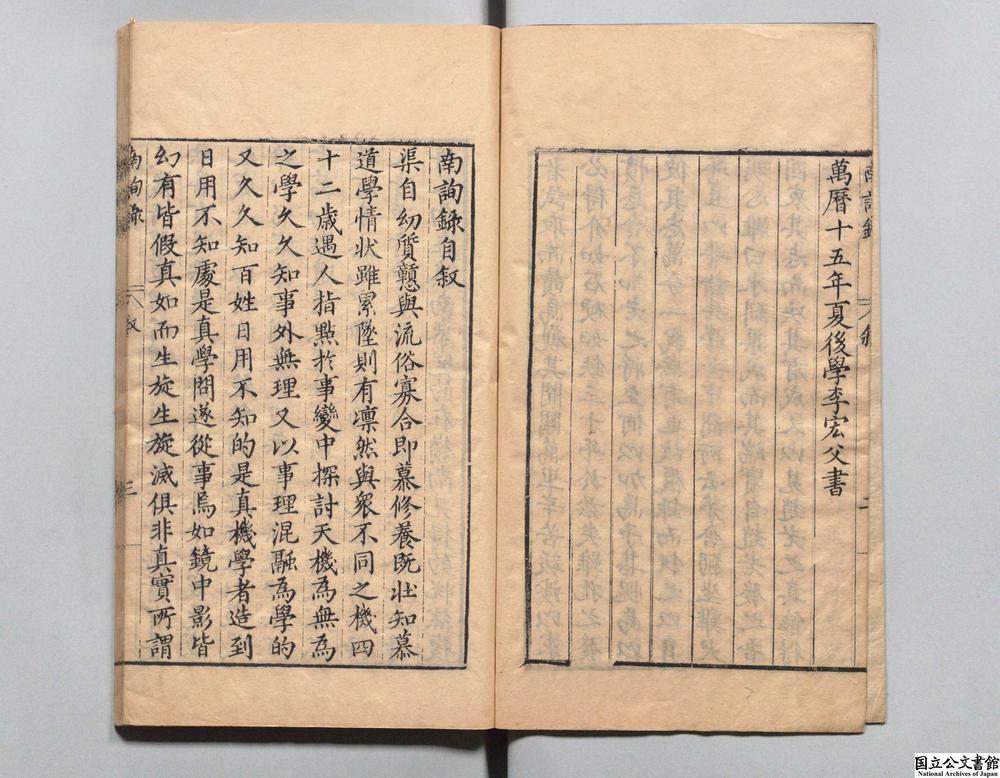 萬曆十五年夏後學李宏父書
南詢錄自叙
渠自幼質戇與流俗寡合即慕修養既壯知慕
道學情狀雖累墜則有凛然與衆不同之機四
十二歲遇人指點於事變中探討天機為無為
之學久久知事外無理又以事理混融為學的
又久久知百姓日用不知的是真機學者造到
日用不知處是真學問遂從事焉如鏡中影皆
幻有皆假真如而生旋生旋滅俱非真實所謂
南詢錄
叙
三
国立公文書館
National Archives of Japan